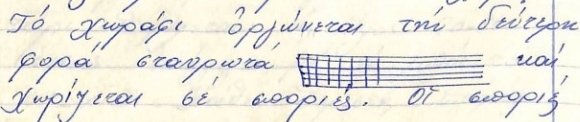 Τό χωράφι ὀργώνεται τήν δεύτερη
φορά σταυρωτά καί
χωρίζεται σέ σποριές. Οἱ σποριές